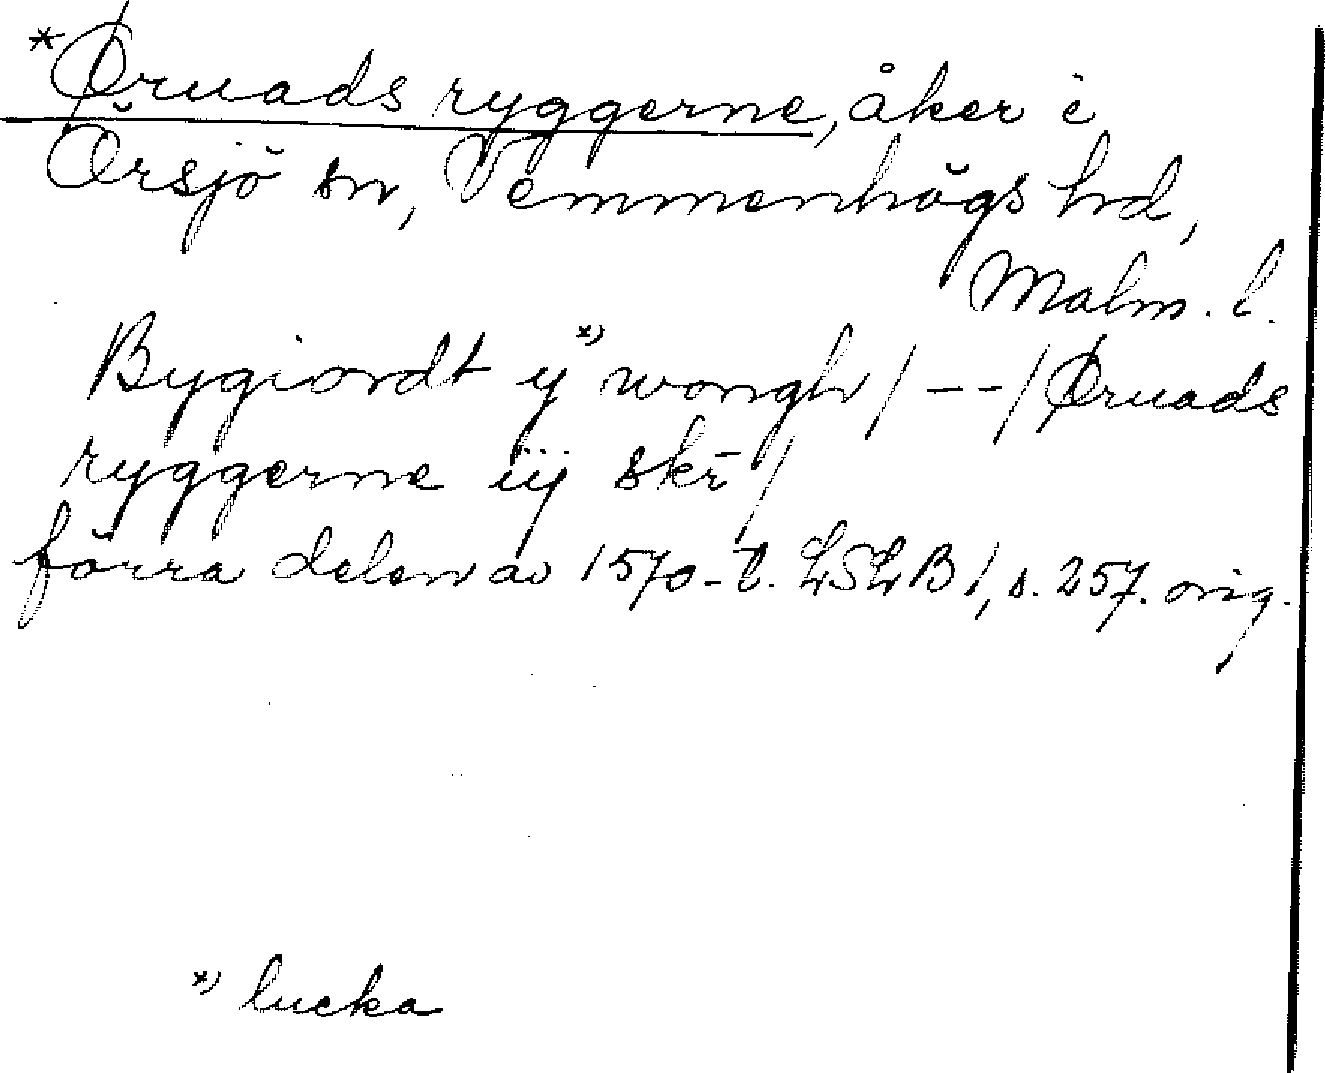 *Øruads ryggerne, åker i
Örsjö sn, Vemmenhögs hd,
Malm. l.
Bygiordt ij *) wongh / -- / Øruads
ryggerne iij skr̄ /
förra delen av 1570-t. LSLB 1, s. 257. orig.
*) lucka